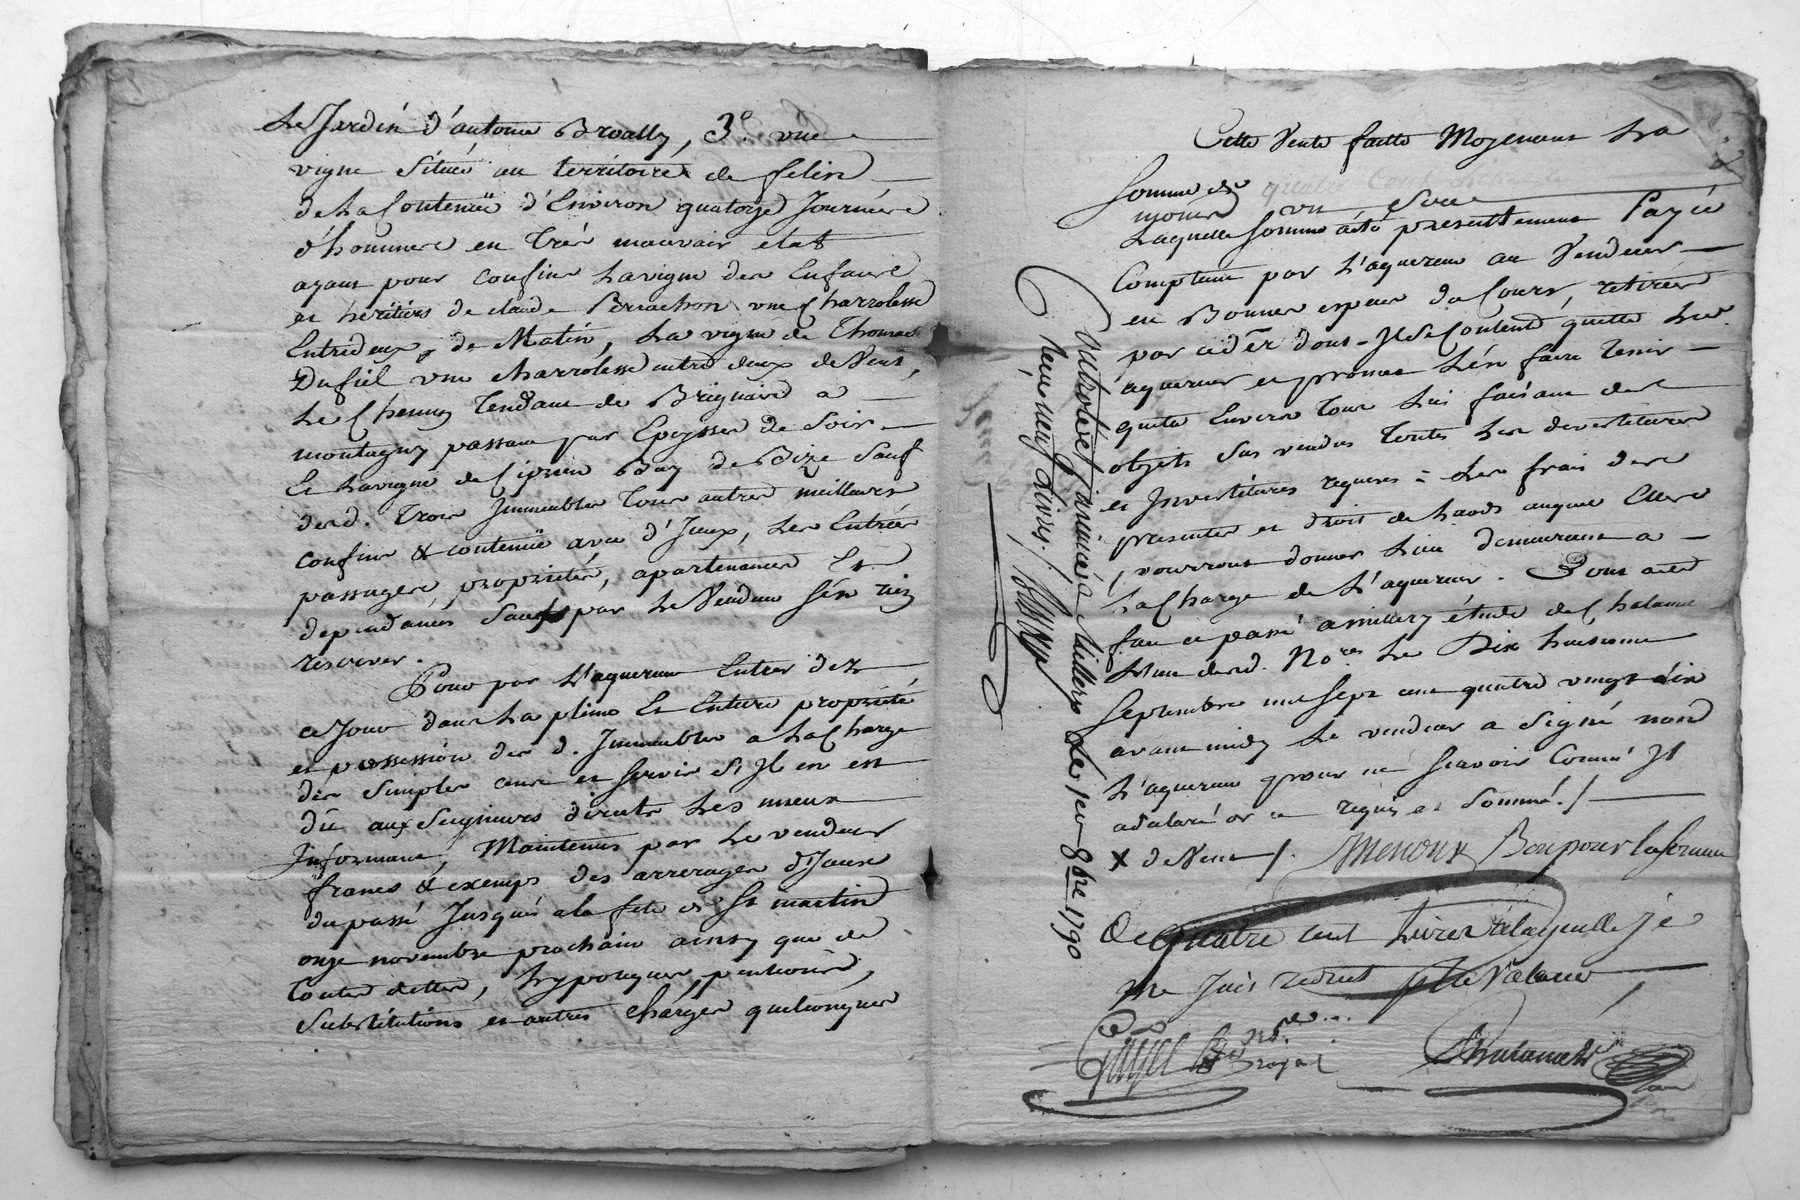 Le Jardin d'antoine Broally, 3.e une
vigne Située au territoire de felin
de La Contenüe d'Environ quatorze Journées
d'hommes en très mauvais état
ayant pour confins La vigne des Enfants
et héritiers de claude Perrachon une Charrolesse
Entredeux, de Matin, La vigne de Thomas
Dufiel une charrolesse entre deux de Vent,
Le Chemin Tendant de Brignaid a
montagny passant par Epeysses de Soir
Et La vigne de Ciprien Bay de Bize Sauf
desd. Trois Immeubles Tous autres meilleurs
confins & contenüe avec d'Iceux, Les Entrées
passages, propriétés, apartenances Et
dependances Sans par Le Vendeur s'én rien
réserver.
Pour par L'aquereur Entrer déz
ce Jour dans La pleine Et Entiere propriété
et possession des d. Immeubles a La Charge
des Simples cens et servis Si Il en est
dû aux Seigneurs directs Les mieux
Informant, Maintenus par Le vendeur
francs & exemps des arrerages d'Iceux
du passé Jusqués a la fete de St martin
onze novembre prochain ainsy que de
Toutes dettes, hypotèques, pentions,
Substitutions et autres Chárges quelconques
Cette Vente faitte Moyenant La
Somme de quatre Cent
moins un Sou
Laquelle Somme a été présenttement Payée
Comptant par L'aquereur au Vendeur
en Bonnes espèces de Cours, retirées
par ce dér dont Il Se Contente quitte Led.
aquereur et promet L'én faire Tenir
quitte Envers Tous Lui faisant des
objets Sus vendus Toutes Les devestitures
et Investitures requises = Les frais des
presentes et droit de Laods auquel Elles
pourront donner Lieu demeurant a
La Charge de L'aquereur. Dont acte
fait et passé a millery étude de Chalamel
L'un desd. No.res Le Dix huitieme
Septembre mil sept cent quatre vingt dix
avant midy Le vendeur a Signé nond
L'aquereur pour ne Scavoir Comme Il
a declaré de ce requis et sommé./.
X de Vent /. Menoux Bon pour la somme
De quatre cent Livres a laquelle je
me suis reduit
Gayet No.re Royal Chalamel
Controlé et insinué a Millery Le 1er 8bre 1790
Reçu neuf Livres./.